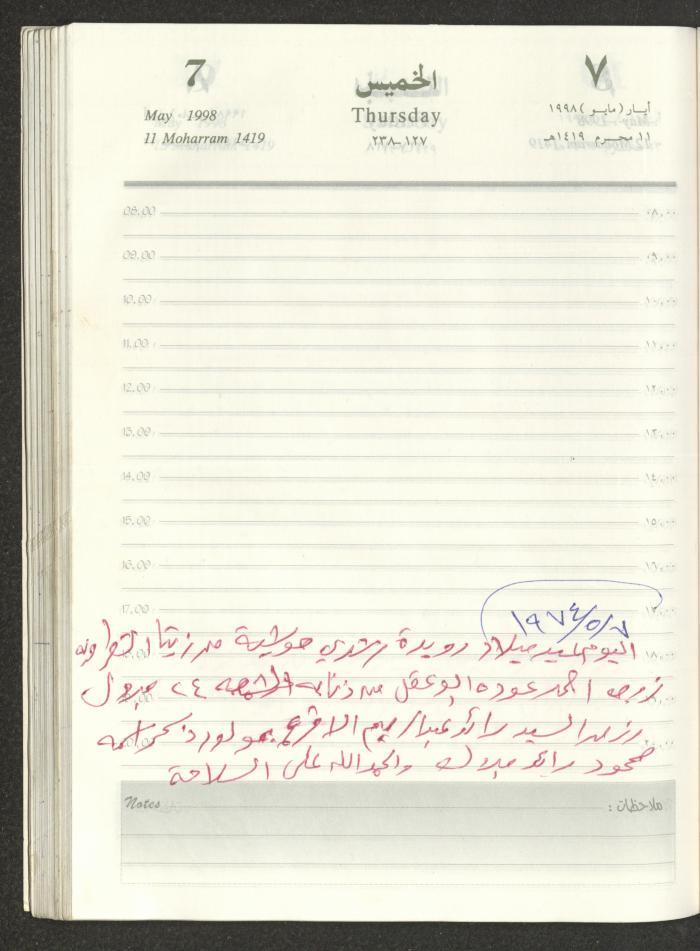 7 الخميس ٧
May 1998 Thursday أيار (مايو) ١٩٩٨
11 Moharram 1419 ١٢٧-٢٣٨ ١١ محرم ١٤١٩هـ
08.00 ٠٨,٠٠
09.00 ٠٩,٠٠
10.00 ١٠,٠٠
11.00 ١١,٠٠
12.00 ١٢,٠٠
13.00 ١٣,٠٠
14.00 ١٤,٠٠
15.00 ١٥,٠٠
16.00 ١٦,٠٠
17.00 ١٧,٠٠
١٩٧٤/٥/٧
اليوم عيد ميلاد رويدة رشدي حوشية من زيتا
١٨,٠٠
احمد عوده ابو عقل من ٢٤
السيد رائد عبد الاقرع بمولود ذكر اسمه
محمود رائد والحمد الله على السلامة
Notes ملاحظات :